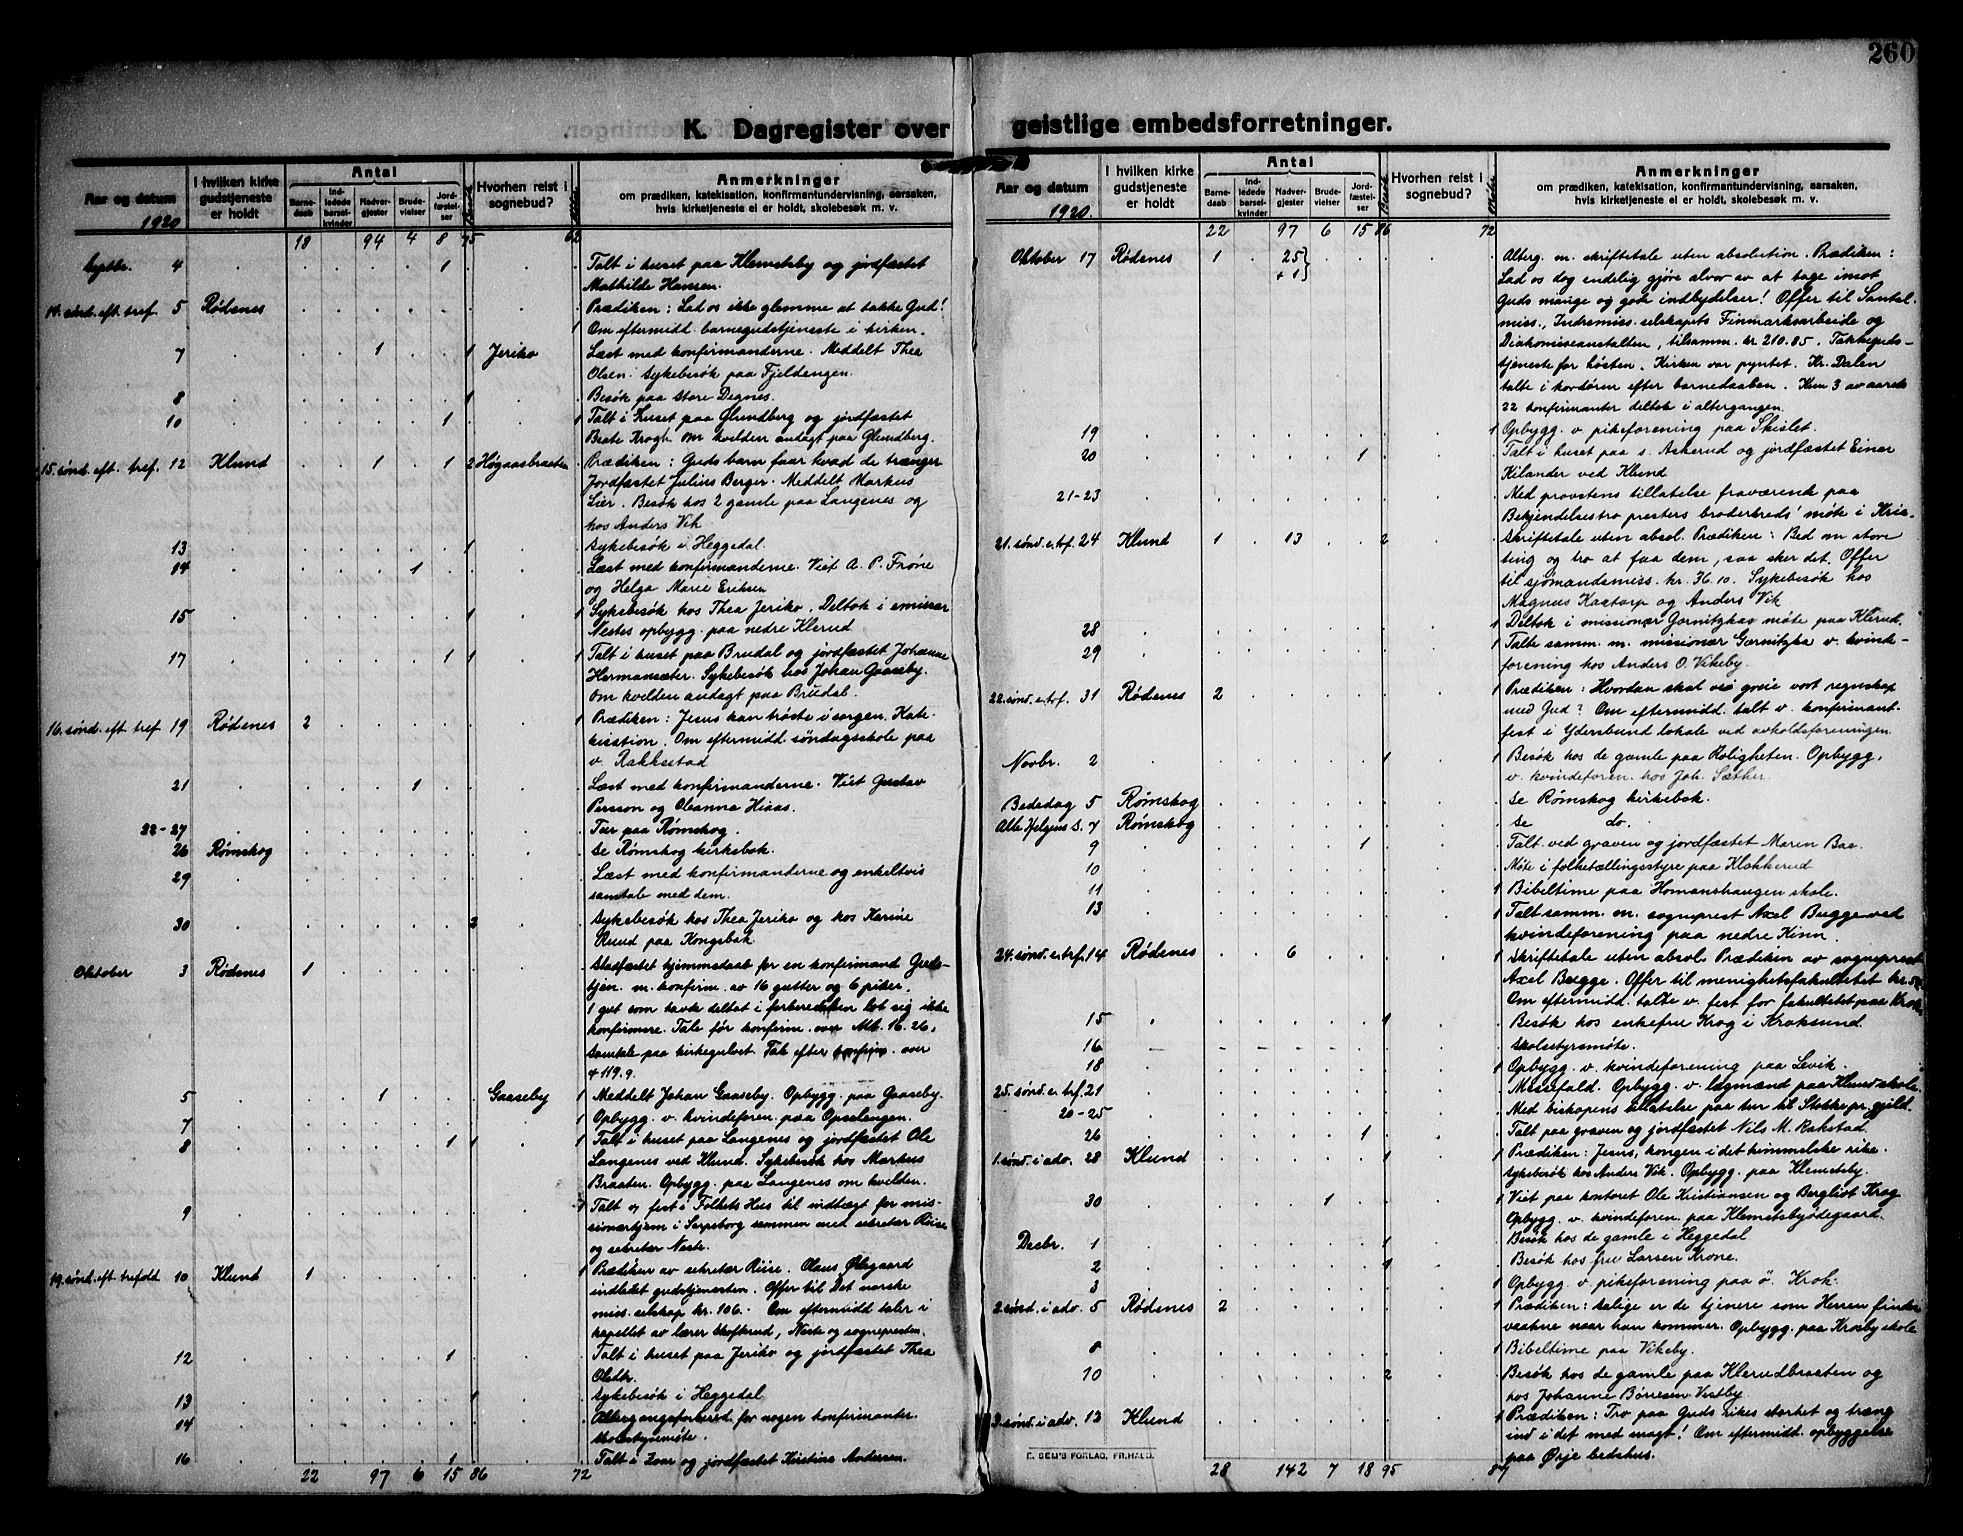 260
K. Dagregister over geistlige embedsforretninger.
Aar og datum
1920
I hvilken kirke gudstjeneste er holdt
Antal
Barne-daab
Ind-ledede barsel-kvinder
Nadver-gjester
Brude-vielser
Jord-fæstel-ser
Hvorhen reist i sognebud?
Anmerkninger
om prædiken, katekisation, konfirmantundervisning, aarsaken,
hvis kirketjeneste ei er holdt, skolebesøk m. v.
18 94 4 8 75 62
Septbr. 4 1 Talt i huset paa Klemetsby og jordfæstet
Mathilde Hansen.
14. sönd. eft. tref. 5 Rödenes Prædiken: Lad os ikke glemme at takke Gud!
1 Om eftermidd. barnegudstjeneste i kirken.
7 1 1 Jeriko Læst med konfirmanderne. Meddelt Thea
Olsen. Sykebesök paa Fjeldengen.
8 1 Besök paa Store Degnes.
10 1 1 Talt i huset paa Glundberg og jordfæstet
Beate Krogh. Om kvelden andagt paa Glundberg.
15. sönd. eft. tref. 12 Klund 1 1 2 Högaasbraaten Prædiken: Guds barn faar hvad de trænger
Jordfæstet Julius Berger. Meddelt Markus
Lier. Besök hos 2 gamle paa Langenes og
hos Anders Vik
13 1 Sykebesök i Heggedal.
14 1 Læst med konfirmanderne. Viet A. P. Fröne
og Helga Marie Eriksen
15 1 1 Sykebesök hos Thea Jeriko. Deltok i emissær
Nestes opbygg. paa nedre Klerud
17 1 1 1 Talt i huset paa Brudal og jordfæstet Johanne
Hermansæter. Sykebesök hos Johan Gaaseby.
Om kvelden andagt paa Brudal.
16. sönd. eft. tref. 19 Rödenes 2 1 Prædiken: Jesus kan tröste i sorgen. Kate-
kisation. Om eftermidd. söndagsskole paa
v. Rakkestad
21 1 Læst med konfirmanderne. Viet Gustav
Persson og Oleanna Hiaas.
22-27 Tur paa Römskog.
26 Römskog Se Römskog kirkebok.
29 Læst med konfirmanderne og enkeltvis
samtale med dem.
30 2 Sykebesök hos Thea Jeriko og hos Karine
Ruud paa Kongsbak.
Oktober 3 Rödenes 1 Stadfæstet hjemmedaab for en konfirmand Guds-
tjen. m. konfirm. av 16 gutter og 6 piker.
1 gut som havde deltat i forberedelsen lot sig ikke
konfirmere. Tale før konfirm. over Mtt. 16. 26.
Samtale paa kirkegulvet. Tale efter konfirm. over
ψ 119. 9.
5 1 Gaaseby 1 Meddelt Johan Gaaseby. Opbygg. paa Gaaseby.
7 1 Opbygg. v. kvindeforen. paa Opsalangen.
8 1 1 1 Talt i huset paa Langenes og jordfæstet Ole
Langenes ved Klund. Sykebesök hos Markus
Braaten. Opbygg. paa Langenes om kvelden.
9 1 Talt v. fest i Folkets Hus til indtægt for mis-
sionærhjem i Sarpsborg sammen med sekretær Riise
og sekretær Neste.
19. sönd. eft. trefold 10 Klund 1 1 Prædiken av sekretær Riise. Olaus Ödegaard
indledet gudstjenesten. Offer til Det norske
miss. selskap kr. 106.- Om eftermidd taler i
kapellet av lærer Skofterud, Neste og sognepresten.
12 1 Talt i huset paa Jeriko og jordfæstet Thea
Olsdtr.
13 1 Sykebesök i Heggedal
14 Altergangsforbered. for nogen konfirmanter.
Skolestyremöte.
16 1 Talt i Zoar og jordfæstet Kristine Andersen.
22 97 6 15 86 72
Aar og datum
1920.
I hvilken kirke gudstjeneste er holdt
Antal
Barne-daab
Ind-ledede barsel-kvinder
Nadver-gjester
Brude-vielser
Jord-fæstel-ser
Besök
Hvorhen reist i sognebud?
Möter
Anmerkninger
om prædiken, katekisation, konfirmantundervisning, aarsaken,
hvis kirketjeneste ei er holdt, skolebesøk m. v.
22 97 6 15 86 72
Oktober 17 Rödenes 1 25 + 1 Alterg. m. skriftetale uten absolution. Prædiken:
Lad os dog endelig gjöre alvor av at tage imot
Guds mange og gode indbydelser! Offer til Santal-
miss., Indremiss. selskapets Finmarksarbeide og
Diakonisseanstalten, tilsamm. kr 210.85. Takkeguds-
tjeneste for hösten. Kirken var pyntet. Kr. Dalen
talte i kordören efter barnedaaben. Kun 3 av aarets
22 konfirmanter deltok i altergangen.
19 1 Opbygg. v. pikeforening paa Skislet.
20 1 Talt i huset paa s. Askerud og jordfæstet Einar
Kilander ved Klund
21-23 Med provstens tillatelse fraværende paa
Bekjendelsestro presters broderkreds' möte i Kria.
21. sönd. e. trf. 24 Klund 1 13 2 Skriftetale uten absol. Prædiken: Bed om store
ting og tro at faa dem, saa sker det. Offer
til sjömandsmiss. kr. 36.10. Sykebesök hos
Magnus Kaatorp og Anders Vik
28 1 Deltok i missionær Gornitzkas möte paa Klerud.
29 1 Talte samm. m. missionær Gornitzka v. kvinde-
forening hos Anders O. Vikeby.
22. sönd. e. trf. 31 Rödenes 2 1 Prædiken: Hvordan skal vi greie vort regnskap
med Gud? Om eftermidd. talt v. konfirmant-
fest i Ydersbund lokale ved avholdsforeningen
Novbr. 2 1 1 Besök hos de gamle paa Roligheten. Opbygg.
v. kvindeforen. hos Joh. Sæther.
Bededag 5 Römskog Se Römskog kirkebok.
Alle Helgens s. 7 Römskog Se do.
9 1 Talt ved graven og jordfæstet Maren Baa.
10 Möte i folketællingsstyre paa Klokkerud.
11 1 Bibeltime paa Homanshaugen skole.
13 1 Talt samm. m. sogneprest Axel Bugge ved
kvindeforening paa nedre Kinn.
24. sönd. e. trf. 14 Rödenes 6 1 Skriftetale uten absol. Prædiken av sogneprest
Axel Bugge. Offer til menighetsfakultetet kr.
Om eftermidd. talte v. fest for fakultetet paa Krok
15 1 Besök hos enkefru Krog i Kroksund.
16 Skolestyremöte.
18 1 Opbygg. v. kvindeforening paa Levik.
25. sönd. e. trf. 21 Messefald. Opbygg. v. lægmænd paa Klund skole.
20-25 Med biskopens tillatelse paa tur til Stokke pr.gjeld.
26 1 Talt paa graven og jordfæstet Nils M. Rakstad.
1. sönd. i adv. 28 Klund 1 1 Prædiken: Jesus, kongen i det himmelske rike.
Sykebesök hos Anders Vik. Opbygg. paa Klemetsby.
30 1 1 Viet paa kontoret Ole Kristiansen og Bergliot Krog
Opbygg. v. kvindeforen. paa Klemetsbyödegaard.
Decbr. 1 1 Besök hos de gamle i Heggedal
2 1 Besök hos fru Larsen Krone.
3 1 Opbygg. v. pikeforening paa ö. Krok.
2. sönd. i adv. 5 Rödenes 2 1 Prædiken: Salige er de tjenere som Herren finder
vaakne naar han kommer. Opbygg. paa Krosby skole
8 1 Bibeltime paa Vikeby.
10 2 Besök hos de gamle paa Klerudbraaten og
hos Johanne Börresen Vestby.
3. sönd. i adv. 12 Klund 1 Prædiken: Tro paa Guds rikes storhet og træng
ind i det med magt! Om eftermidd. opbyggelse
paa Örje bedehus.
E. SEM'S FORLAG, FR.HALD.
28 142 7 18 95 87